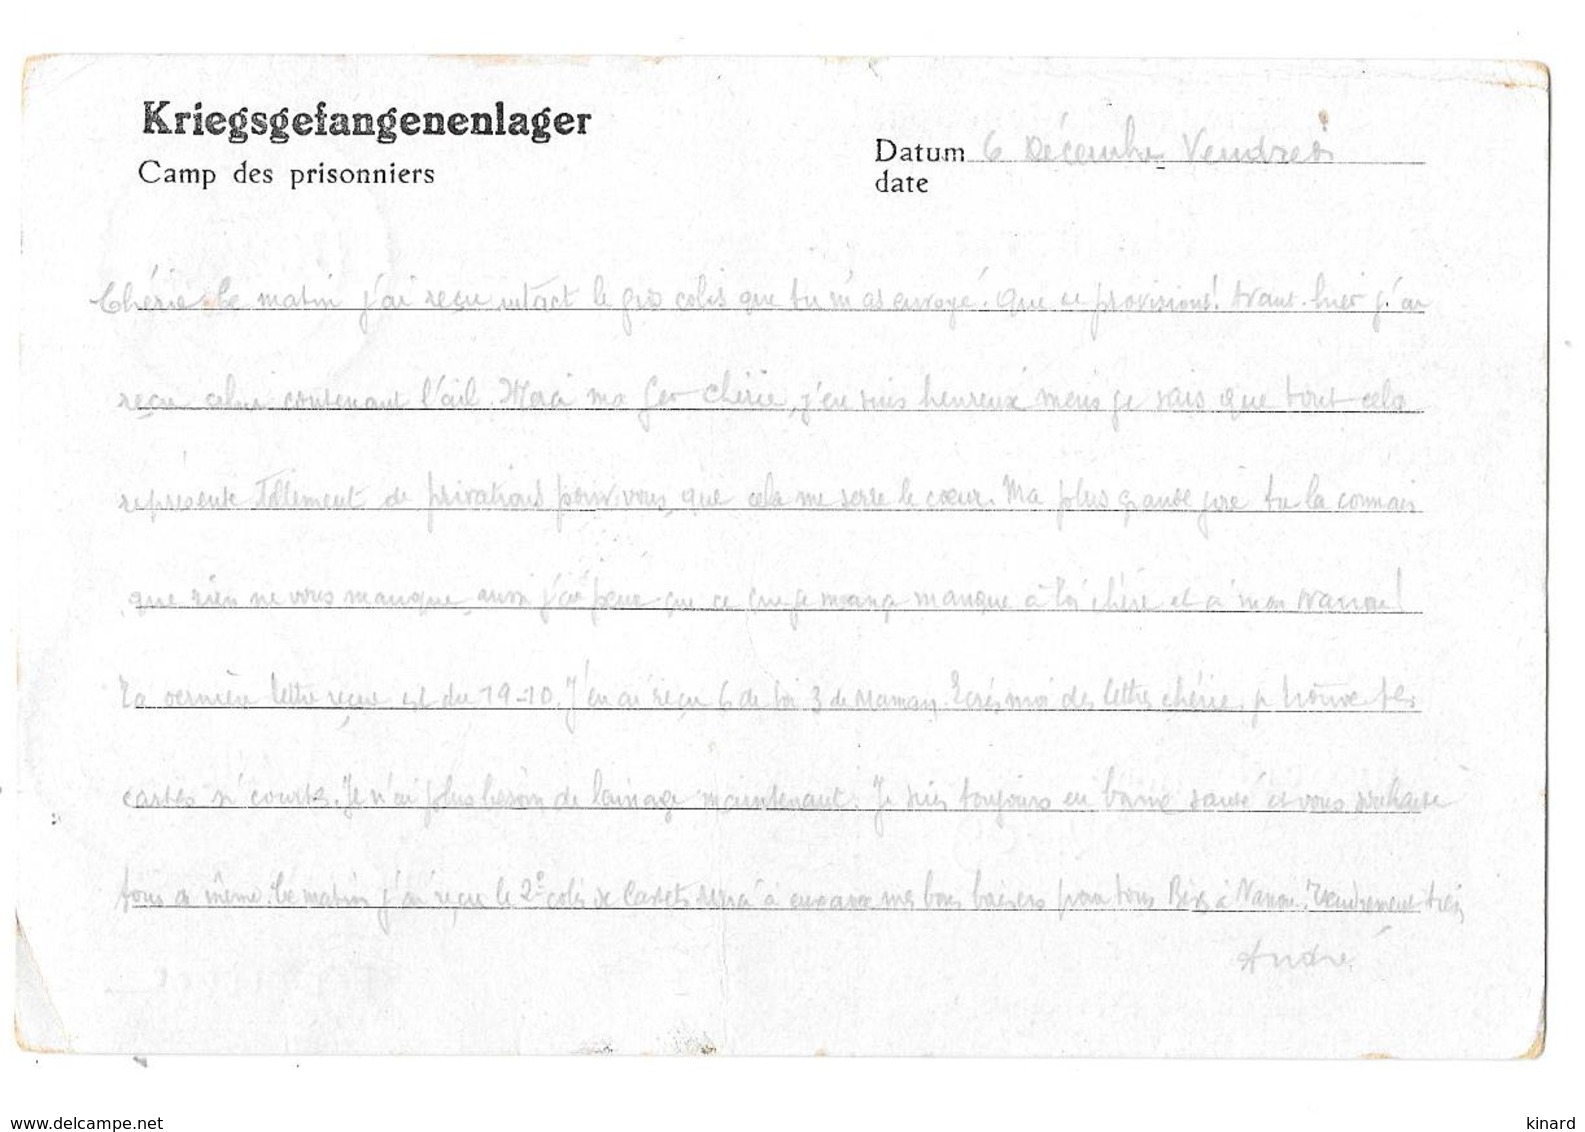 Kriegsgefangenenlager
Camp des prisonniers
Datum 6 Décembre Vendredi
date
Chérie. Ce matin j'ai reçu intact le gros colis que tu m'as envoyé. Que de provisions! Avant-hier j'ai
reçu celui contenant l'ail. Merci ma Geo chérie, j'en suis heureux mais je sais que tout cela
représente tellement de privations pour vous que cela me serre le cœur. Ma plus grande joie tu la connais
que rien ne vous manque, aussi j'ai peur que ce que je mange manque à toi chérie et à mon Nanou!
Ta dernière lettre reçue est du 19-10. J'en ai reçu 6 de toi 3 de Maman. Ecris moi des lettres chérie, je trouve tes
cartes si courtes. Je n'ai plus besoin de lainage maintenant. Je suis toujours en bonne santé et vous souhaite
tous de même. Ce matin j'ai reçu le 2e colis de mes bons baisers pour tous à Nanou. Tendrement
André
www.delcampe.net
kinard